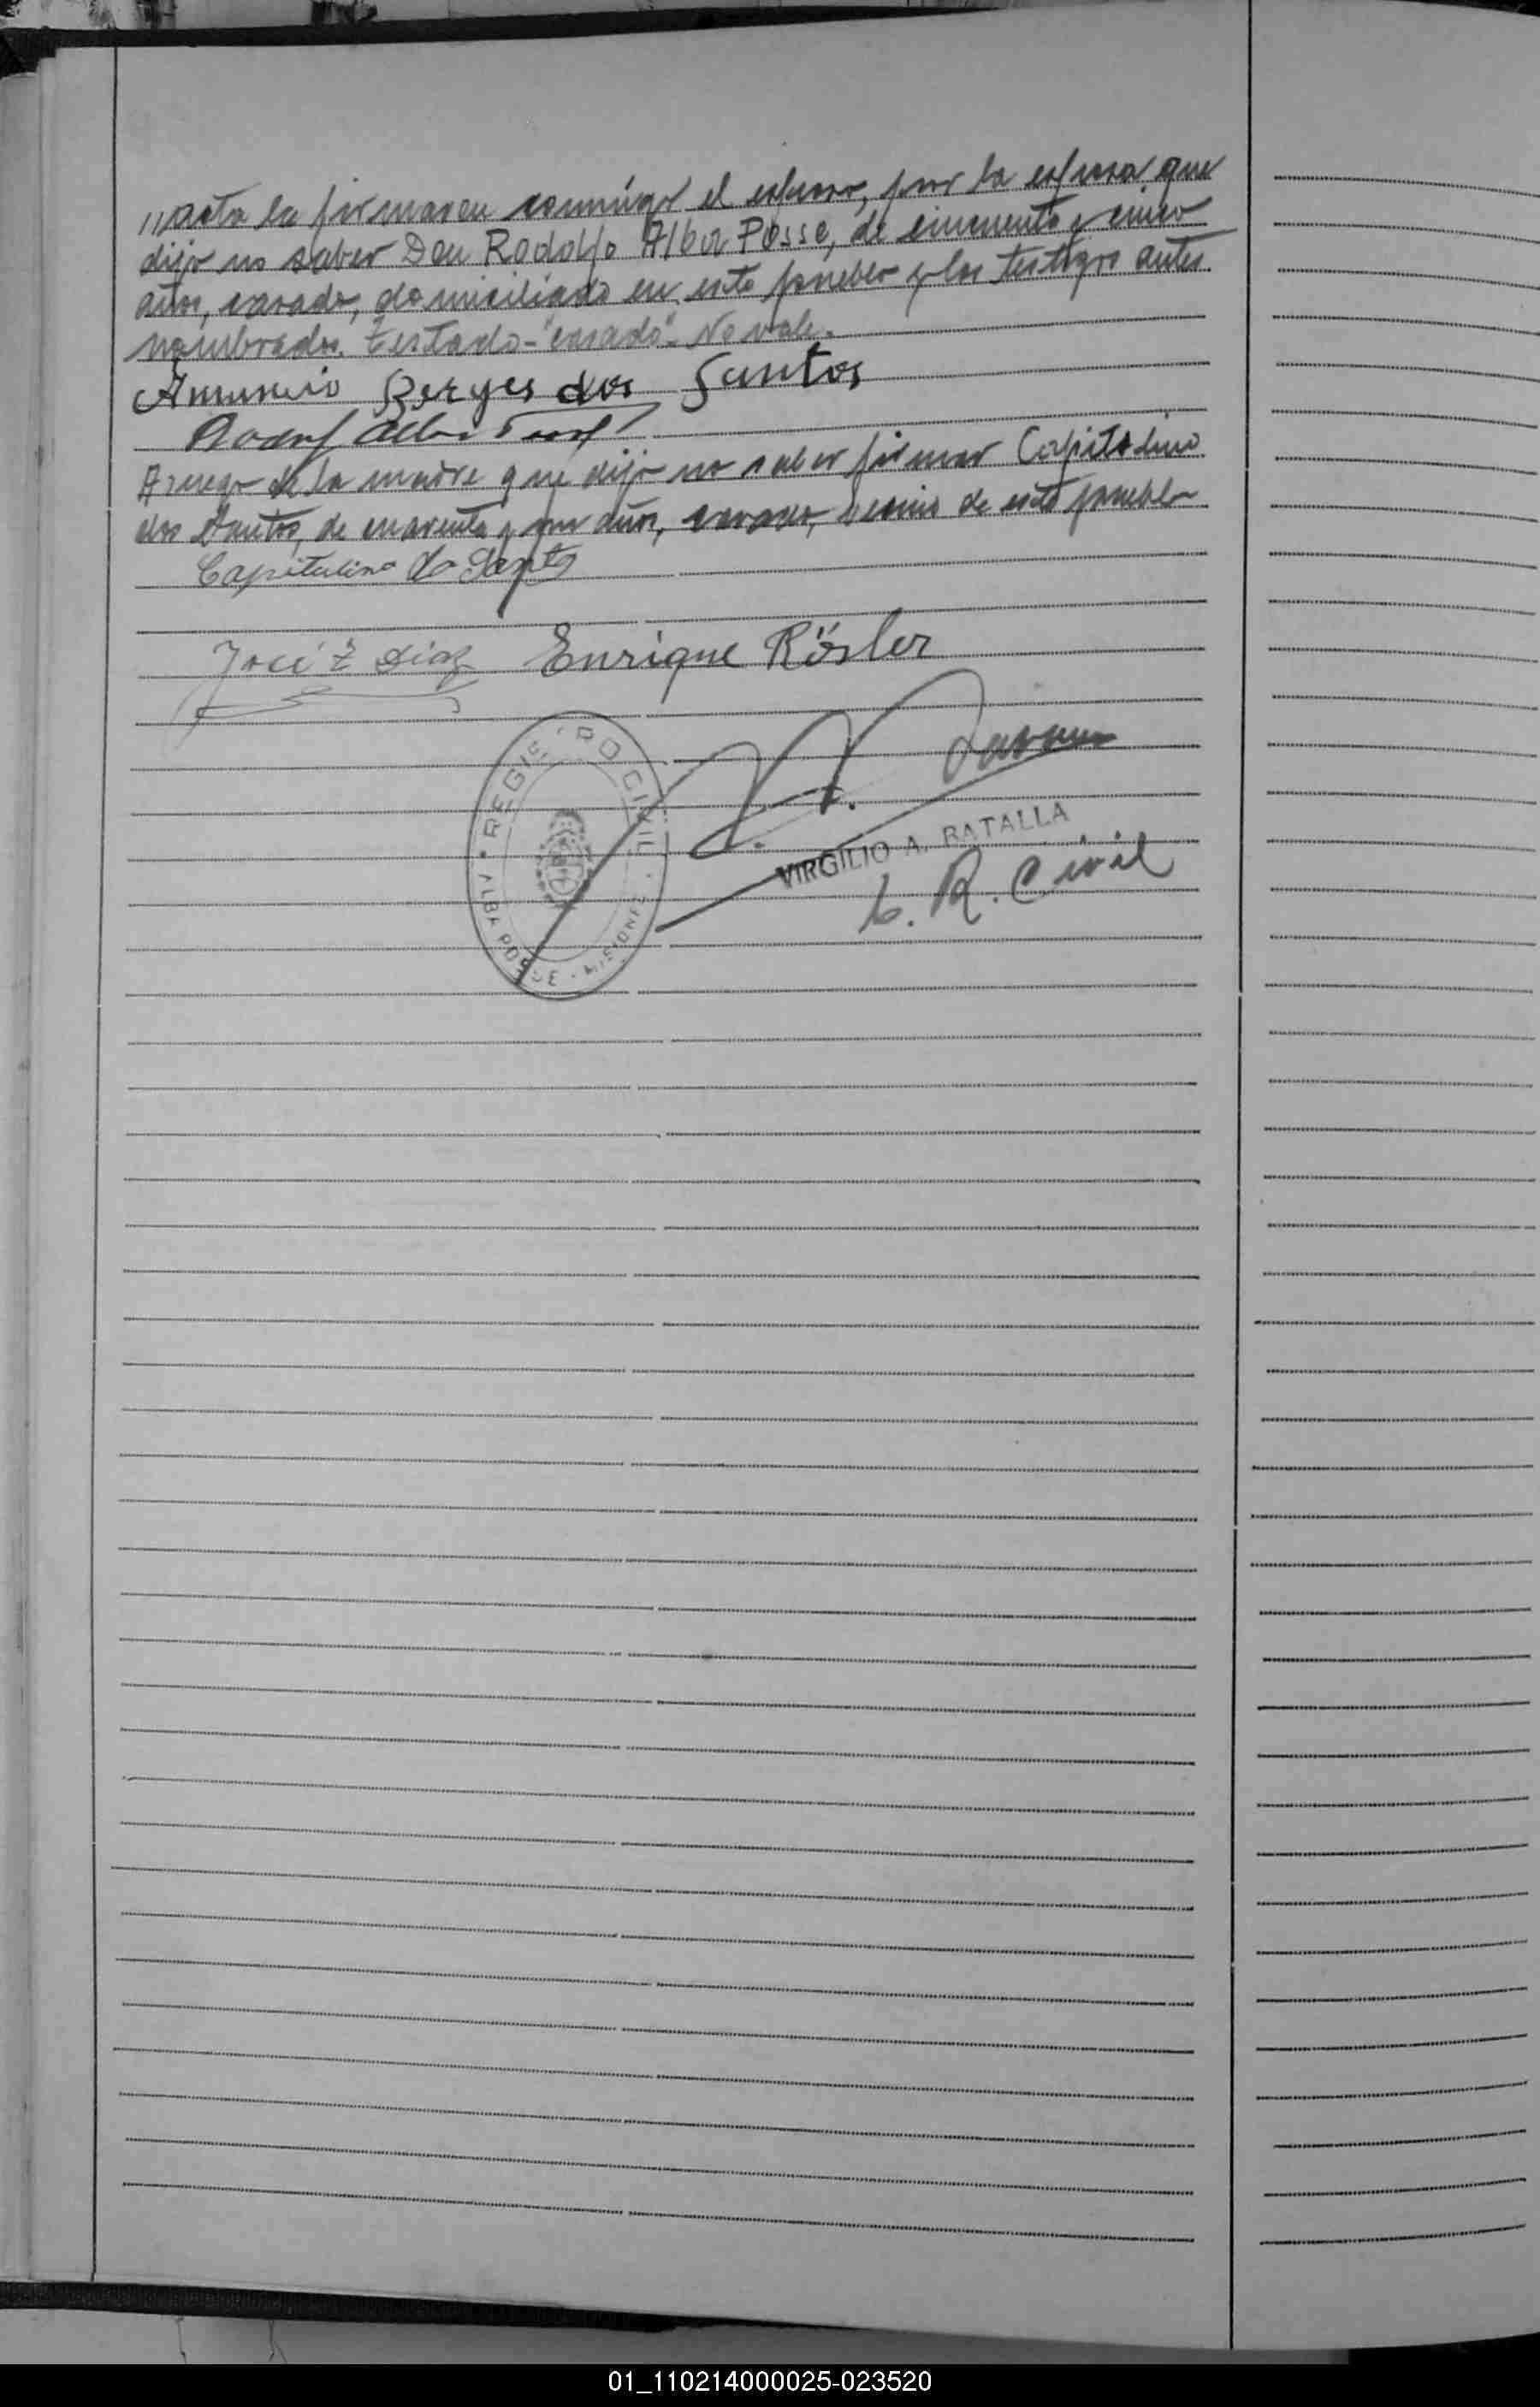 "acta la firmaron conmigo el esposo, por la esposa que
dijo no saber Don Rodolfo Alba Posse, de cincuenta y cinco
años, casado, domiciliado en este pueblo y los testigos antes
nombrados. Testado-"casado"- No vale.
Anuncio Borges dos Santos
Rodolf Alba Posse
A ruego de la madre que dijo no saber firmar Capitolino
dos Santos, de cuarenta y un años, casado, vecino de este pueblo
Capitulino do Santo
José Z Diaz Enrique Rösler
REGISTRO CIVIL
ALBA POSSE · MISIONES
VIRGILIO A. BATALLA
E. R. Civil
01_110214000025-023520